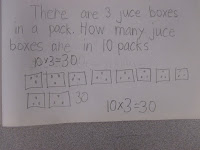 There are 3 juce boxes
in a pack. How many juce
boxes are in 10 packs
10x3=30
30
10x3=30